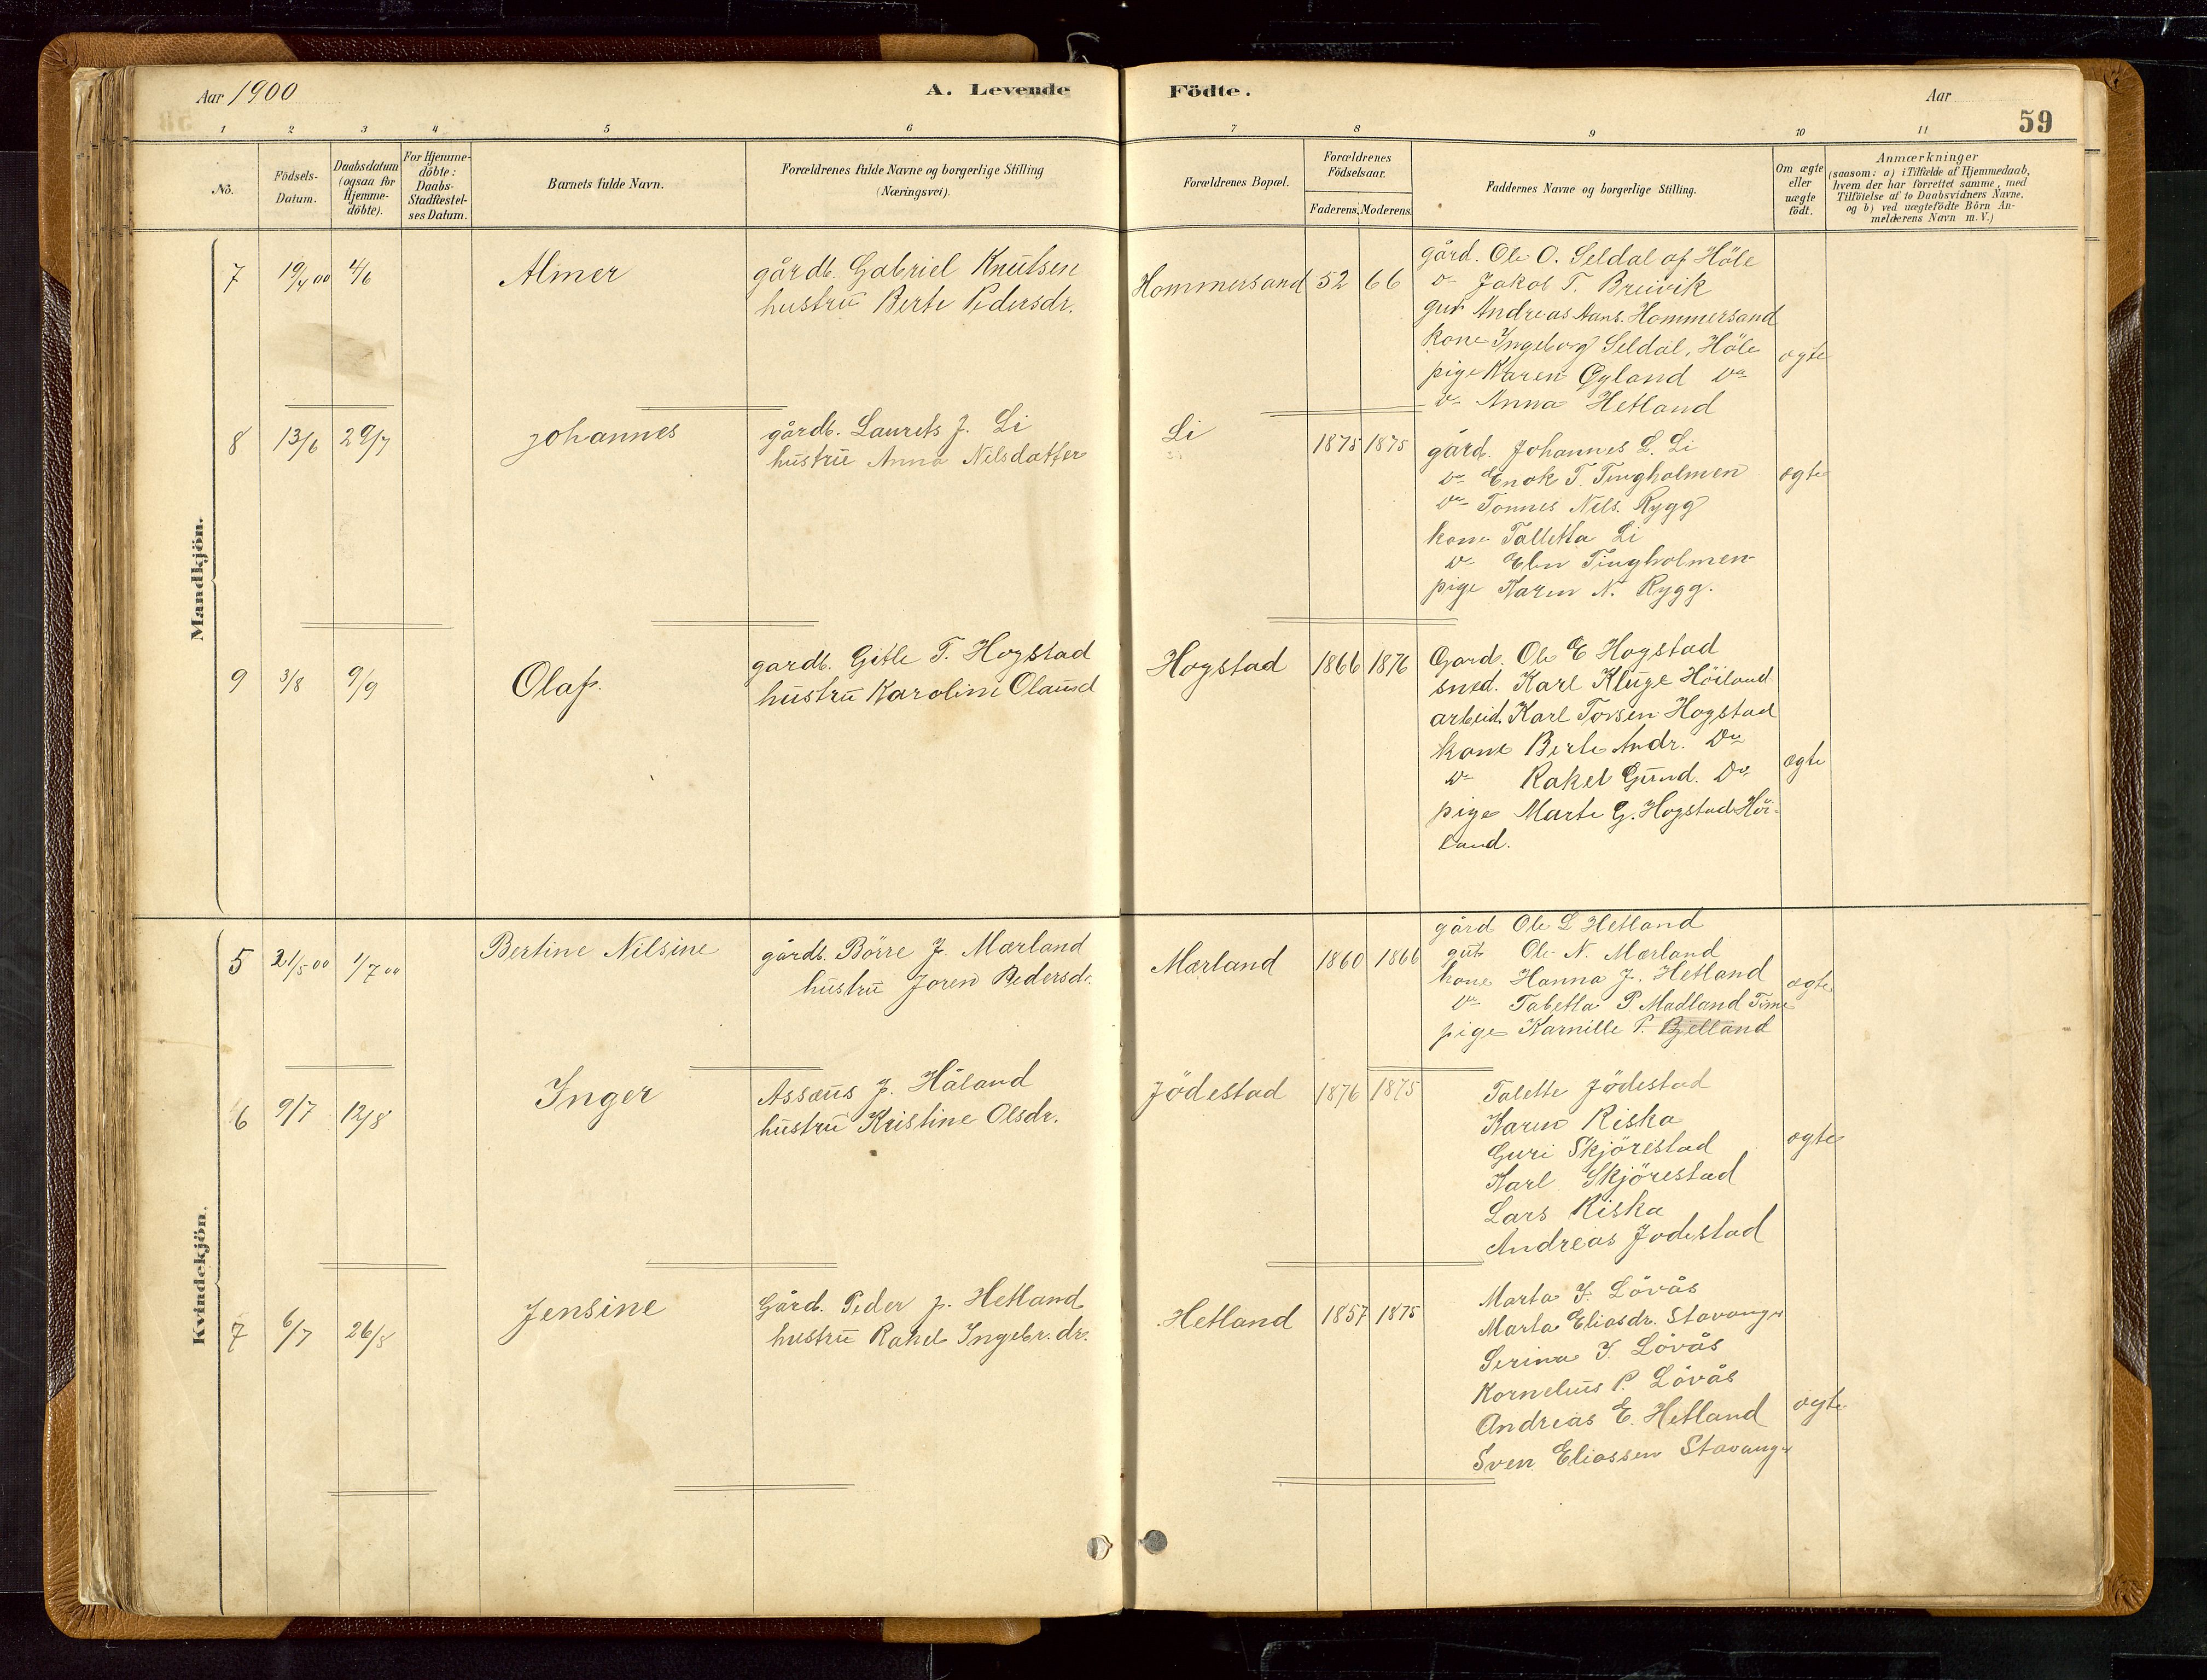 Aar 1900
A. Levende
Födte.
Aar
59
1 2 3 4 5 6 7 8 9 10 11
No.
Födsels-
Datum.
Daabsdatum
(ogsaa for
Hjemme-
döbte).
For Hjemme-
döbte:
Daabs-
Stadfæstel-
ses Datum.
Barnets fulde Navn.
Forældrenes fulde Navne og borgerlige Stilling
(Næringsvei).
Forældrenes Bopæl.
Forældrenes
Födselsaar.
Faderens. Moderens.
Faddernes Navne og borgerlige Stilling.
Om ægte
eller
uægte
födt.
Anmærkninger
(saasom: a) i Tilfælde af Hjemmedaab,
hvem der har forrettet samme, med
Tilföielse af to Daabsvidners Navne,
og b) ved uægtefödte Börn An-
melderens Navn m. V.)
Mandkjön.
7 19/4 00 4/6 Almer
gårdb. Gabriel Knutsen
hustru Berte Pedersdr.
Hommersand 52 66
gård. Ole O. Seldal af Höle
Do Jakob T. Breivik
gut Andreas Hans. Hommersand
kone Ingeborg Seldal, Höle
pige Karen Gyland Do
Do Anna Hetland
ægte
8 13/6 29/7 Johannes
gårdb. Laurits J. Li
hustru Anna Nilsdatter
Li 1875 1875
gård. Johannes L. Li
Do Enok T. Tingholmen
Do Tonnes Nils. Rygg
kone Talletta Li
Do Elen Tingholmen
pige Karen N. Rygg.
ægte
9 3/8 9/9 Olaf.
gardb. Gitle T. Hogstad
hustru Karoline Olausd
Hogstad 1866 1876
Gard. Ole E Hogstad
smed. Karl Kluge Höiland
arbeid. Karl Torsen Hogstad
kone Berte Andr. Do
Do Rakel Gund. Do
pige Marte G. Hogstad Höi-
land.
ægte
Kvindekjön.
5 21/5 00 1/7 00 Bertine Nilsine
gårdb. Börre J. Mærland
hustru Joren Pedersdr.
Mærland 1860 1866
gård Ole L Hetland
gut Ole N. Mærland
kone Hanna J. Hetland
Do Tabetta P. Madland Time
pige Karnille P. Bjelland
ægte
6 9/7 12/8 Inger
Assæus J. Håland
hustru Kristine Olsdr.
Jödestad 1876 1875
Talette Jödestad
Karen Riska
Guri Skjörestad
Karl Skjörestad
Lars Riska
Andreas Jodestad
ægte
7 6/7 26/8 Jensine
Gård. Peder J. Hetland
hustru Rakel Ingebr. dr.
Hetland 1857 1875
Marta I. Lövås
Marta Eliasdr. Stavanger
Serina I. Lövås
Kornelius P. Lövås
Andreas E. Hetland
Sven Eliassen Stavanger
ægte